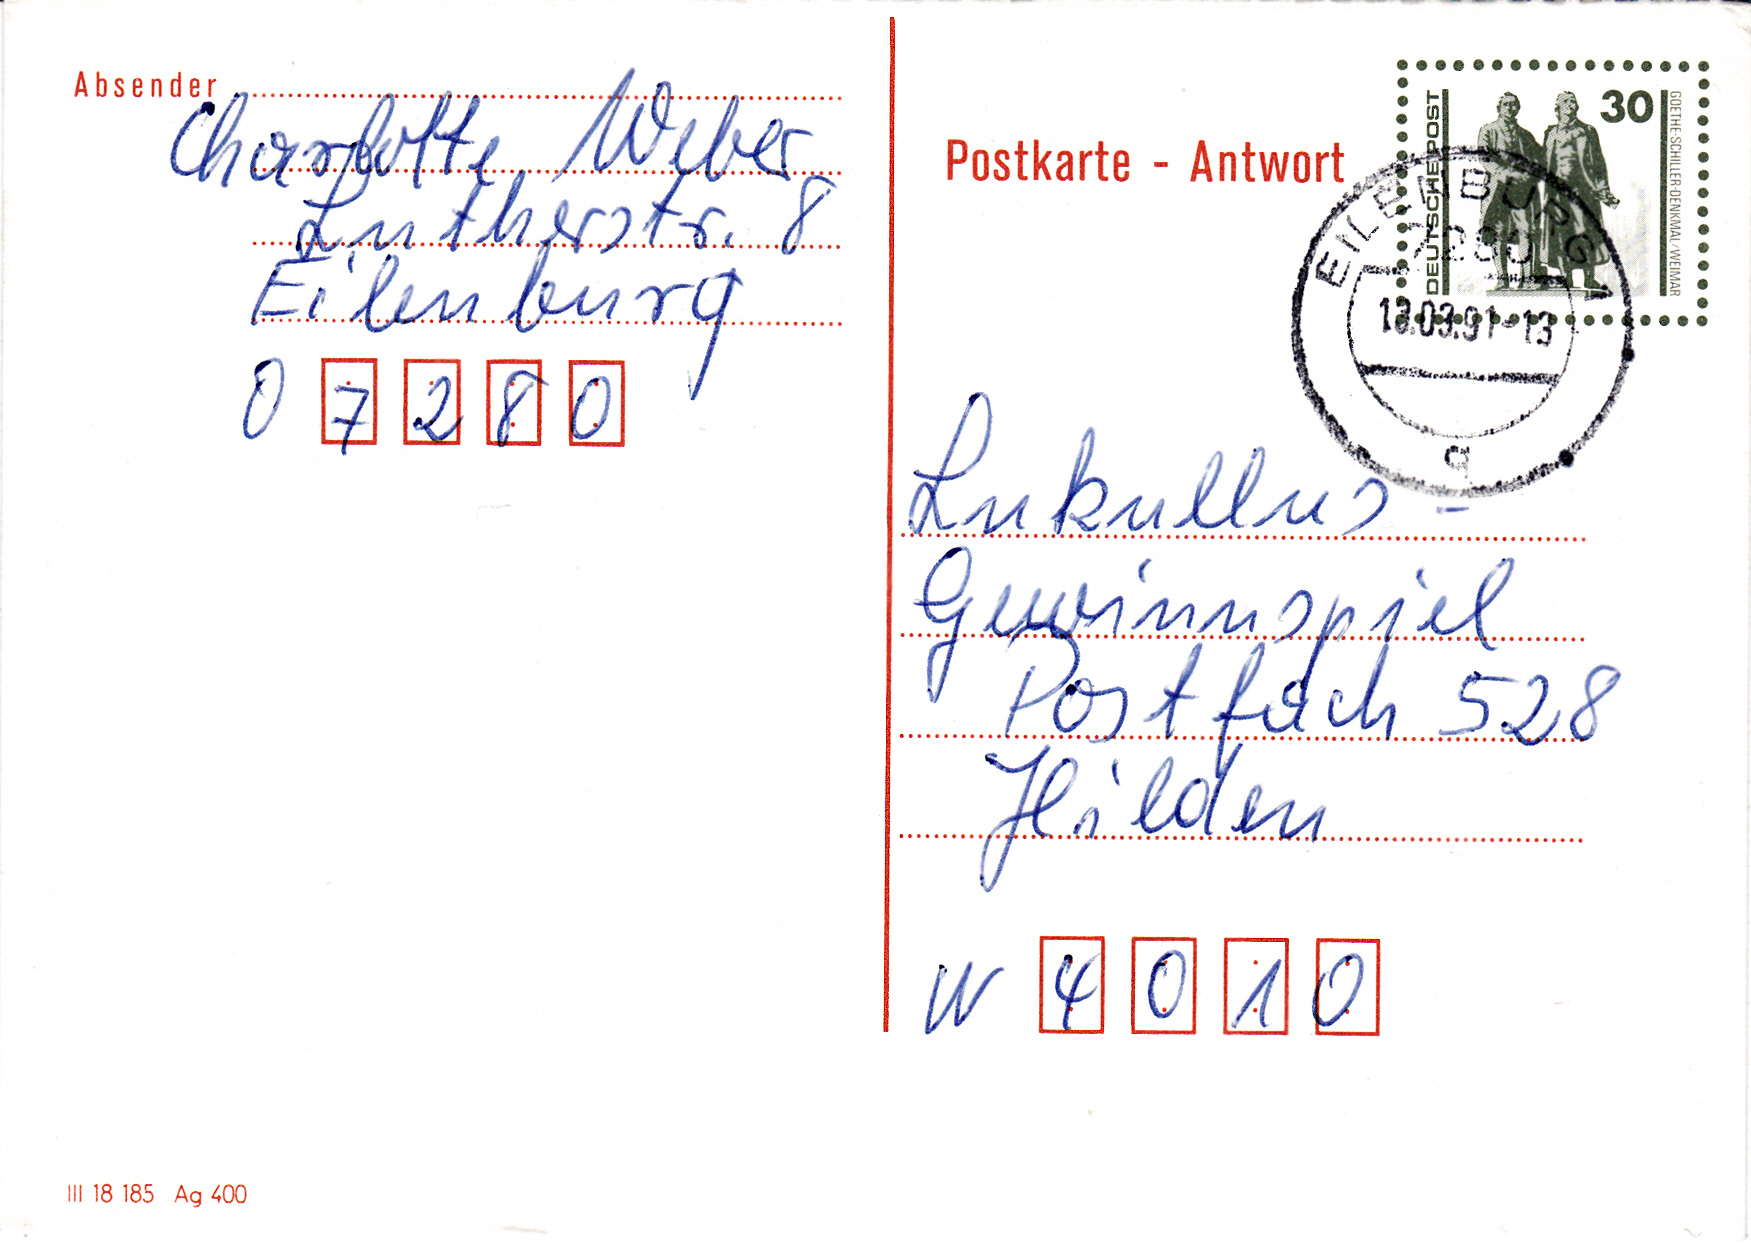 Absender
Charlotte Weber
Lutherstr. 8
Eilenburg
O 7280
III 18 185 Ag 400
Postkarte - Antwort
DEUTSCHE POST
30
GOETHE-SCHILLER-DENKMAL/WEIMAR
EILENBURG 1
7280
03.91-13
Lukullus -
Gewinnspiel
Postfach 528
Hilden
W 4010